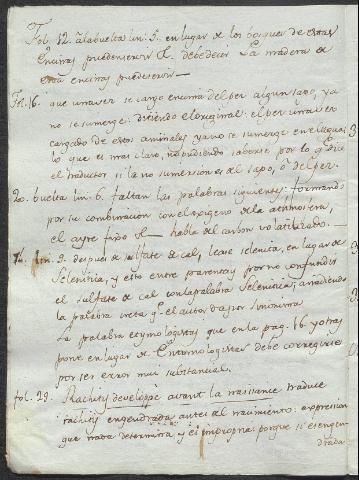 Fol. 12. a la buelta lin. 5. en lugar de los bosques de estas
Encinas pueden servir &. debe decir La madera de
esta encinas puede servir —
Fol. 16. que una vez se cargo encima del per algun sapo, ya
no se sumerge: diciendo el original: el per una vez
cargado de estos animales ya no se sumerge en las aguas
lo que es mas claro, no pudiendo saberse por lo q dice
el traductor si la no sumersion es del sapo, ò del per.
20. buelta lin. 6. faltan las palabras siguientes: formando
por su combinacion con el oxigeno de la atmosfera,
el ayre fixo &. — habla del carbon volatilizado. —
lin. 9. despues de sulfate de cal, lease selenita, en lugar de
Selenitica, y esto entre parentesis por no confundir
el sulfate de cal con la palabra Selenitica, añadiendo
la palabra
La palabra etymologistas que en la pag. 16. y otras
pone en lugar de Entomologistas debe corregirse
por ser error mui substancial.
fol. 29. Rachitis developpé avant la naissance traduce
rachitis engendrada antes del nacimiento: expresion
que nada determina y es impropia: porque si es engen-
drada